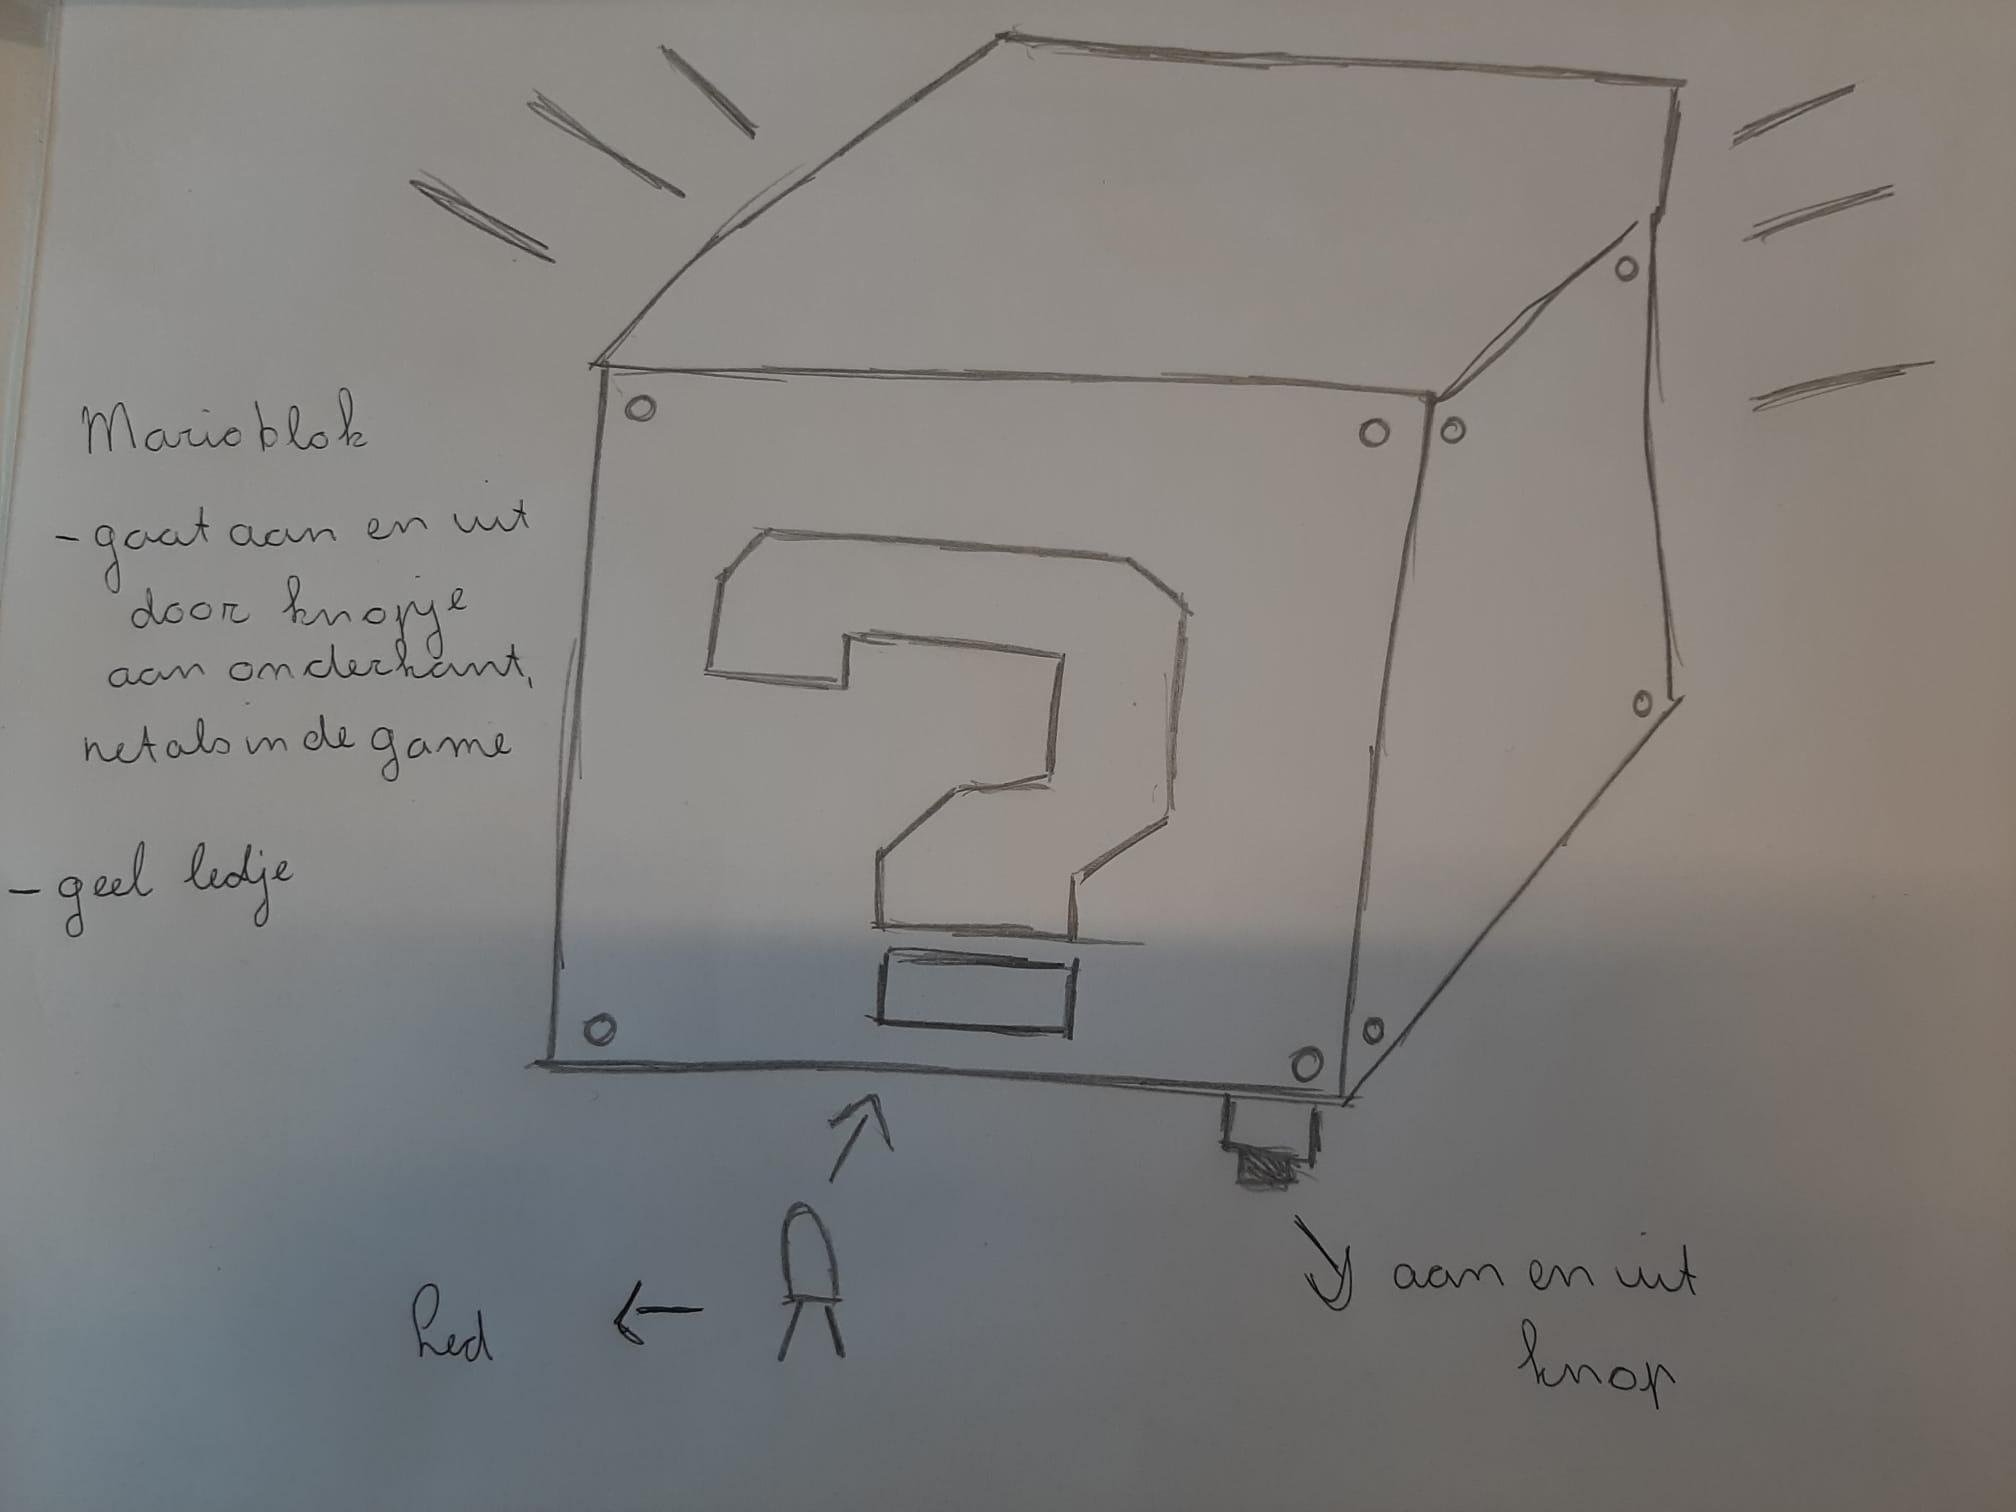 Marioblok
- gaat aan en uit
door knopje
aan onderkant,
net als in de game
- geel ledje
?
Led
aan en uit
knop